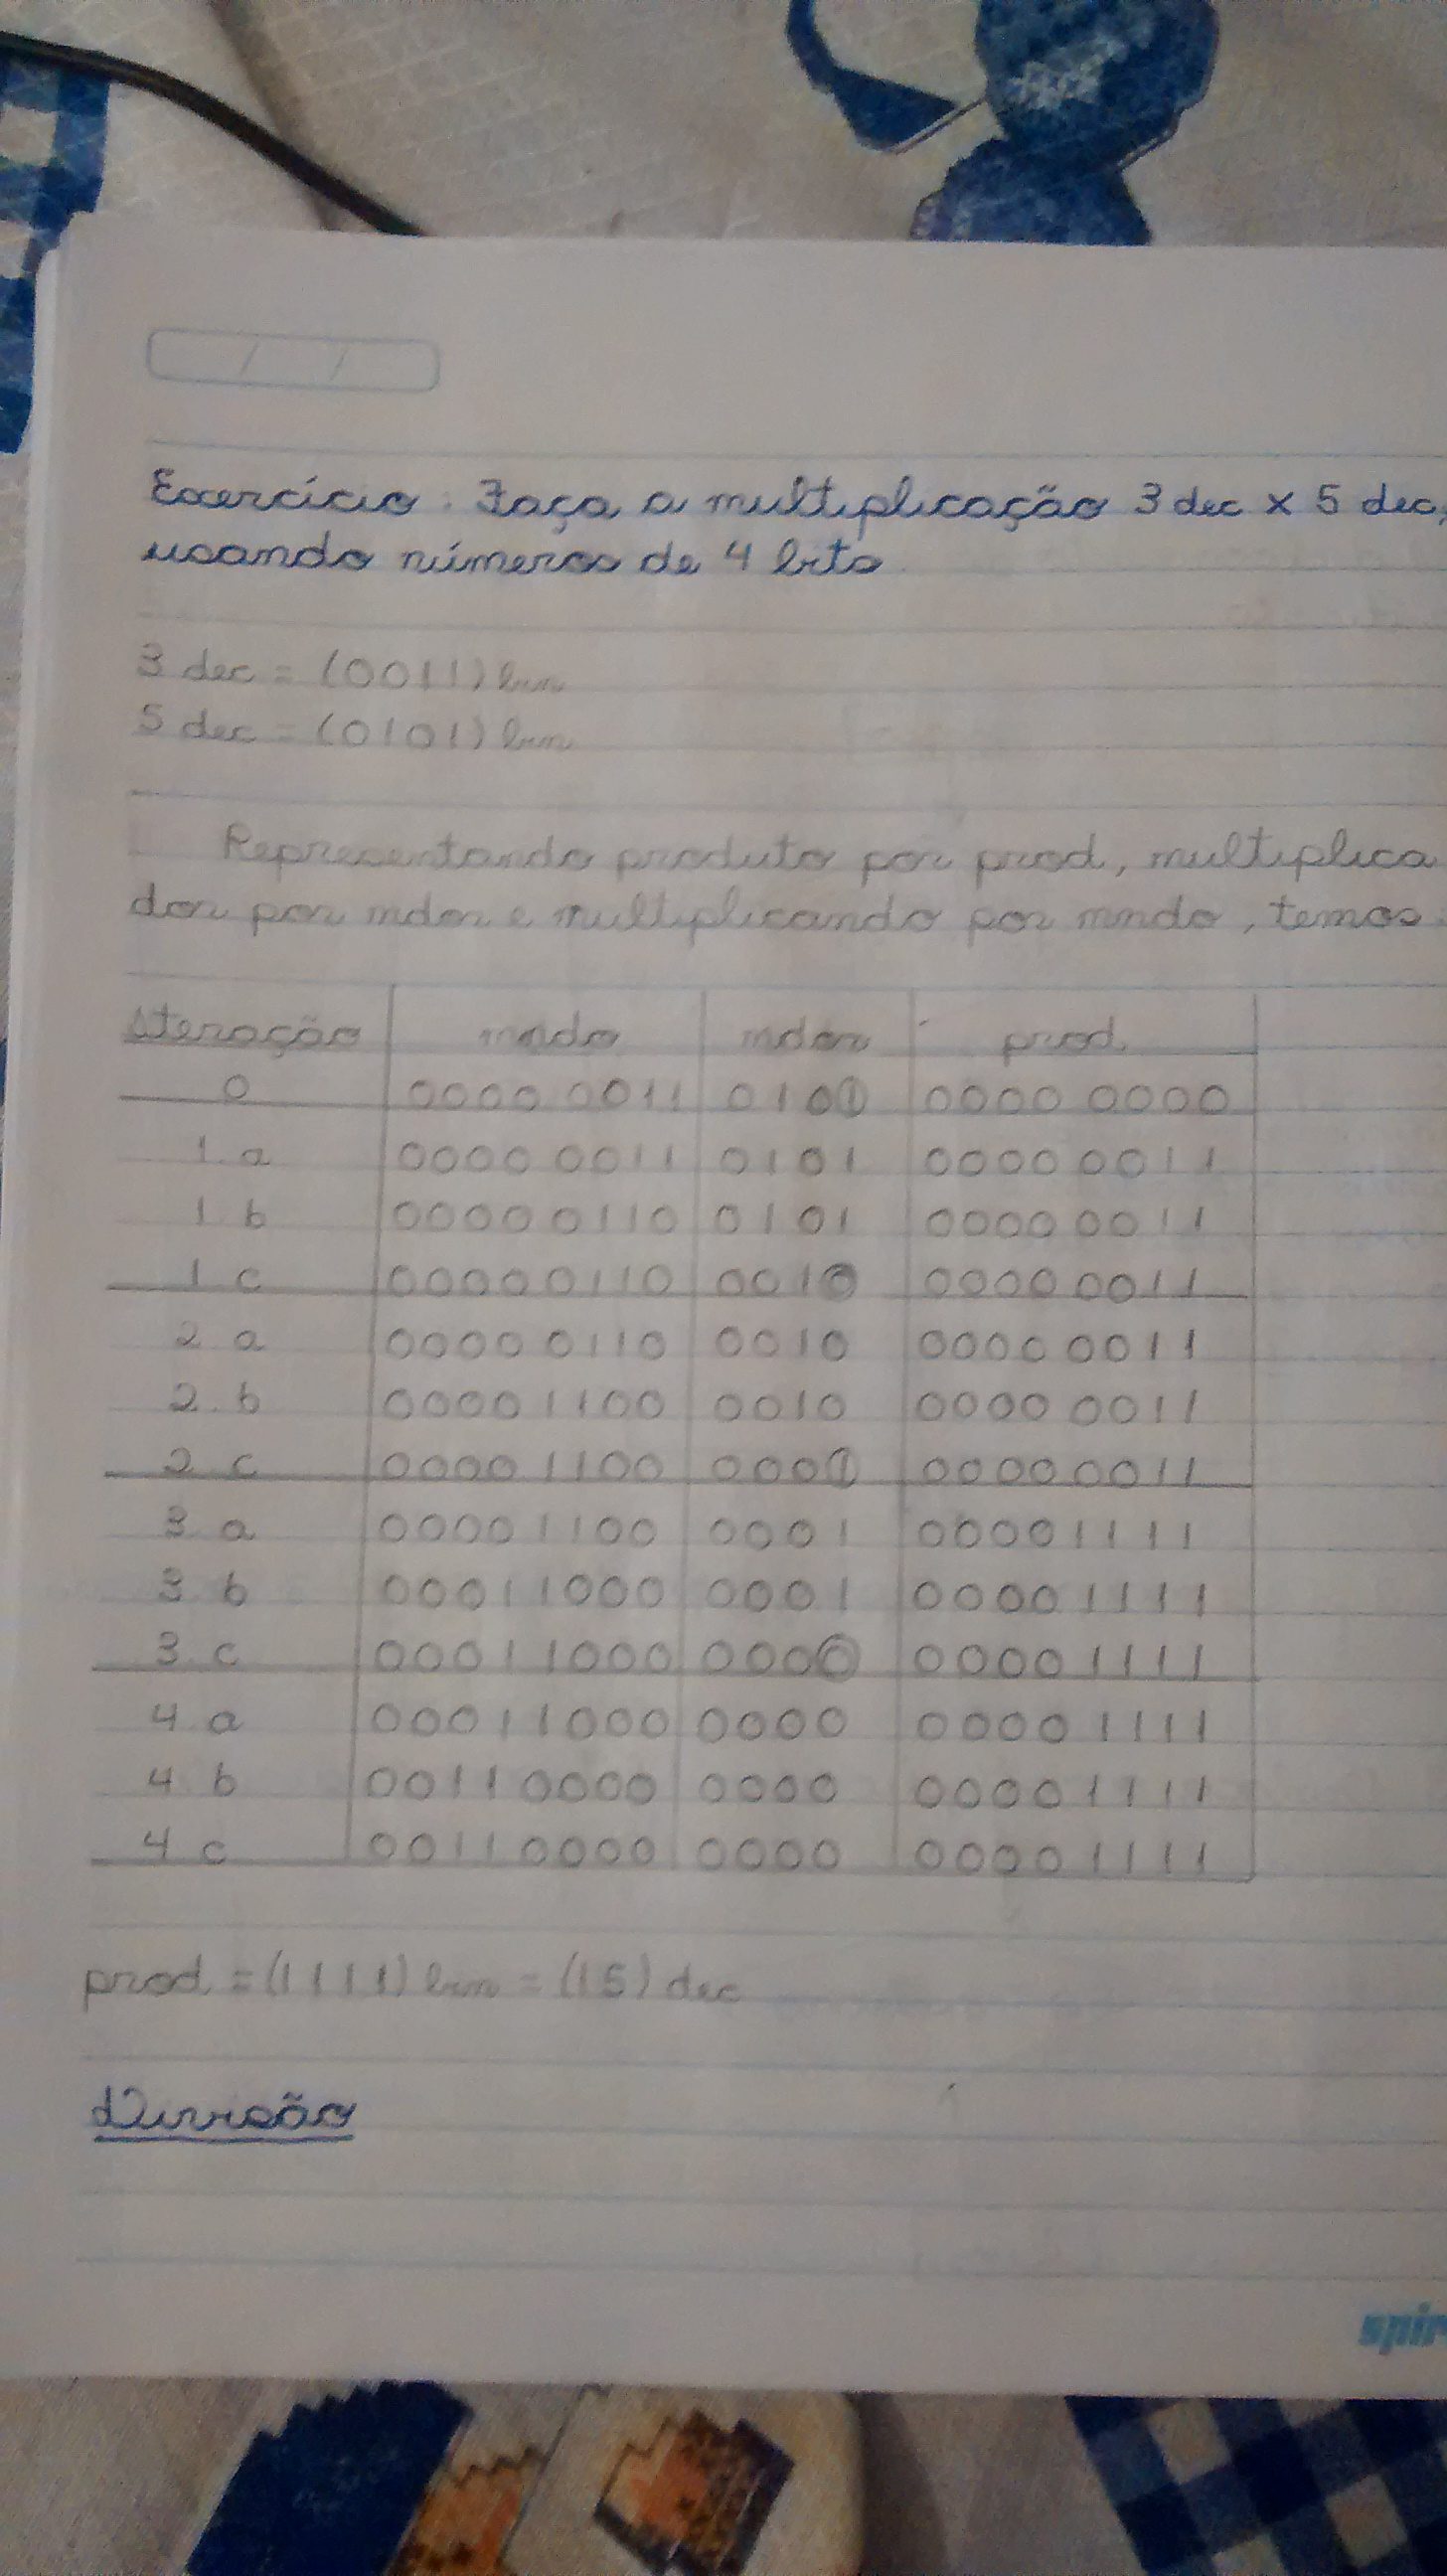 / /
Exercício: Faça a multiplicação 3 dec x 5 dec,
usando números de 4 bits.
3 dec = (0011) bin
5 dec = (0101) bin
Representando produto por prod, multiplica
dor por mdor e multiplicando por mndo, temos:
iteração mndo mdor prod
0 0000 0011 0101 0000 0000
1.a 0000 0011 0101 0000 0011
1.b 0000 0110 0101 0000 0011
1.c 0000 0110 0010 0000 0011
2.a 0000 0110 0010 0000 0011
2.b 0000 1100 0010 0000 0011
2.c 0000 1100 0001 0000 0011
3.a 0000 1100 0001 0000 1111
3.b 0001 1000 0001 0000 1111
3.c 0001 1000 0000 0000 1111
4.a 0001 1000 0000 0000 1111
4.b 0011 0000 0000 0000 1111
4.c 0011 0000 0000 0000 1111
prod = (1111) bin = (15) dec
divisão